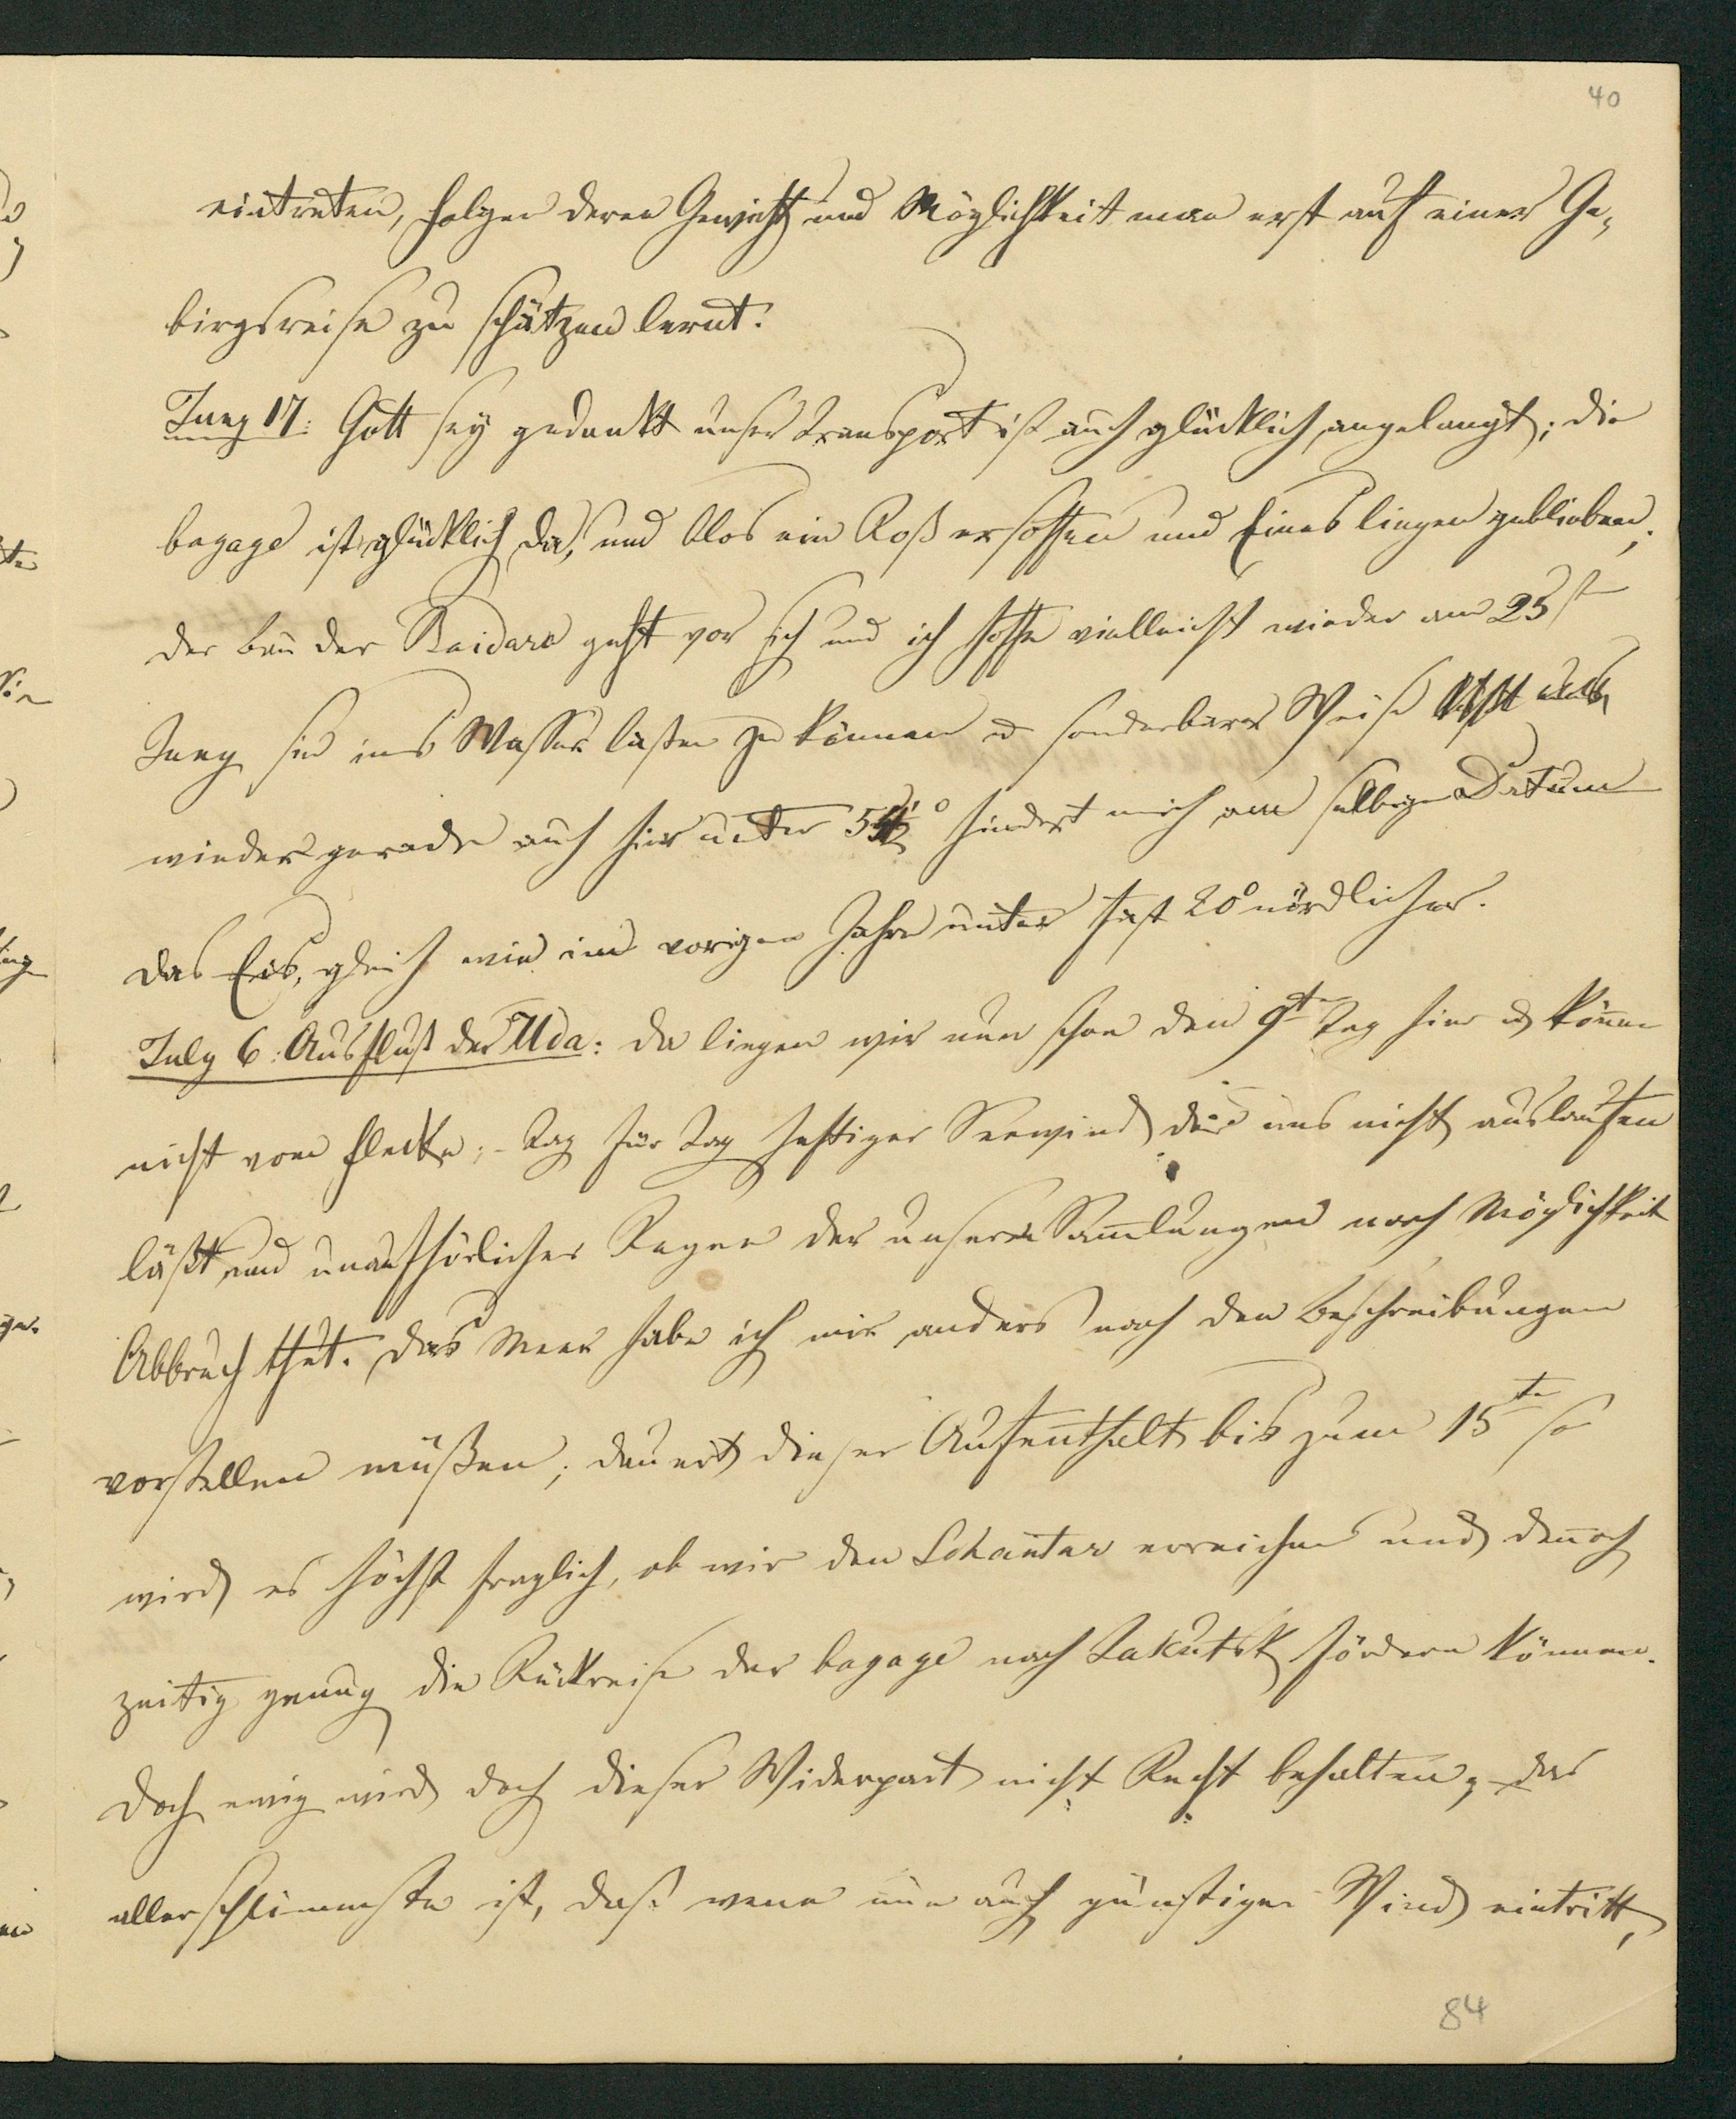 40
eintreten, Folgen deren Gewicht und Möglichkeit man erst auf einer Ge-
birgsreise zu schätzen lernt.
Juny 17: Gott sey gedankt unser Transport ist auch glücklich angelangt; die
bagage ist glücklich da, und blos ein Roß ersoffen und Eines liegen geblieben;
der Bau der Baidare geht vor sich und ich hoffe vielleicht wieder am 25st
Juny sie ins Wasser lassen zu können u sonderbarer Weise
wieder gerade auch hier unter 54½° hindert mich am selbigen Datum
das Eis, gleich wie im vorigen Jahre unter fast 20° nördlicher.
July 6: Ausfluß der Uda: da liegen wir nun schon den 9ten Tag hier u können
nicht vom Flecke; - Tag für Tag heftiger Seewind der uns nicht auslaufen
läßt und unaufhörlicher Regen der unseren Samlungen nach Möglichkeit
Abbruch thut. Das Meer habe ich mir anders nach den Beschreibungen
vorstellen müßen; dauert dieser Aufenthalt bis zum 15ten so
wird es höchst fraglich, ob wir den Schantar erreichen und dennoch
zeitig genug die Rückreise der bagage nach Jakutsk fördern können.
Doch ewig wird doch dieser Widerpart nicht Recht behalten; - das
allerschlimmste ist, daß wenn nun auch günstiger Wind eintritt,
84